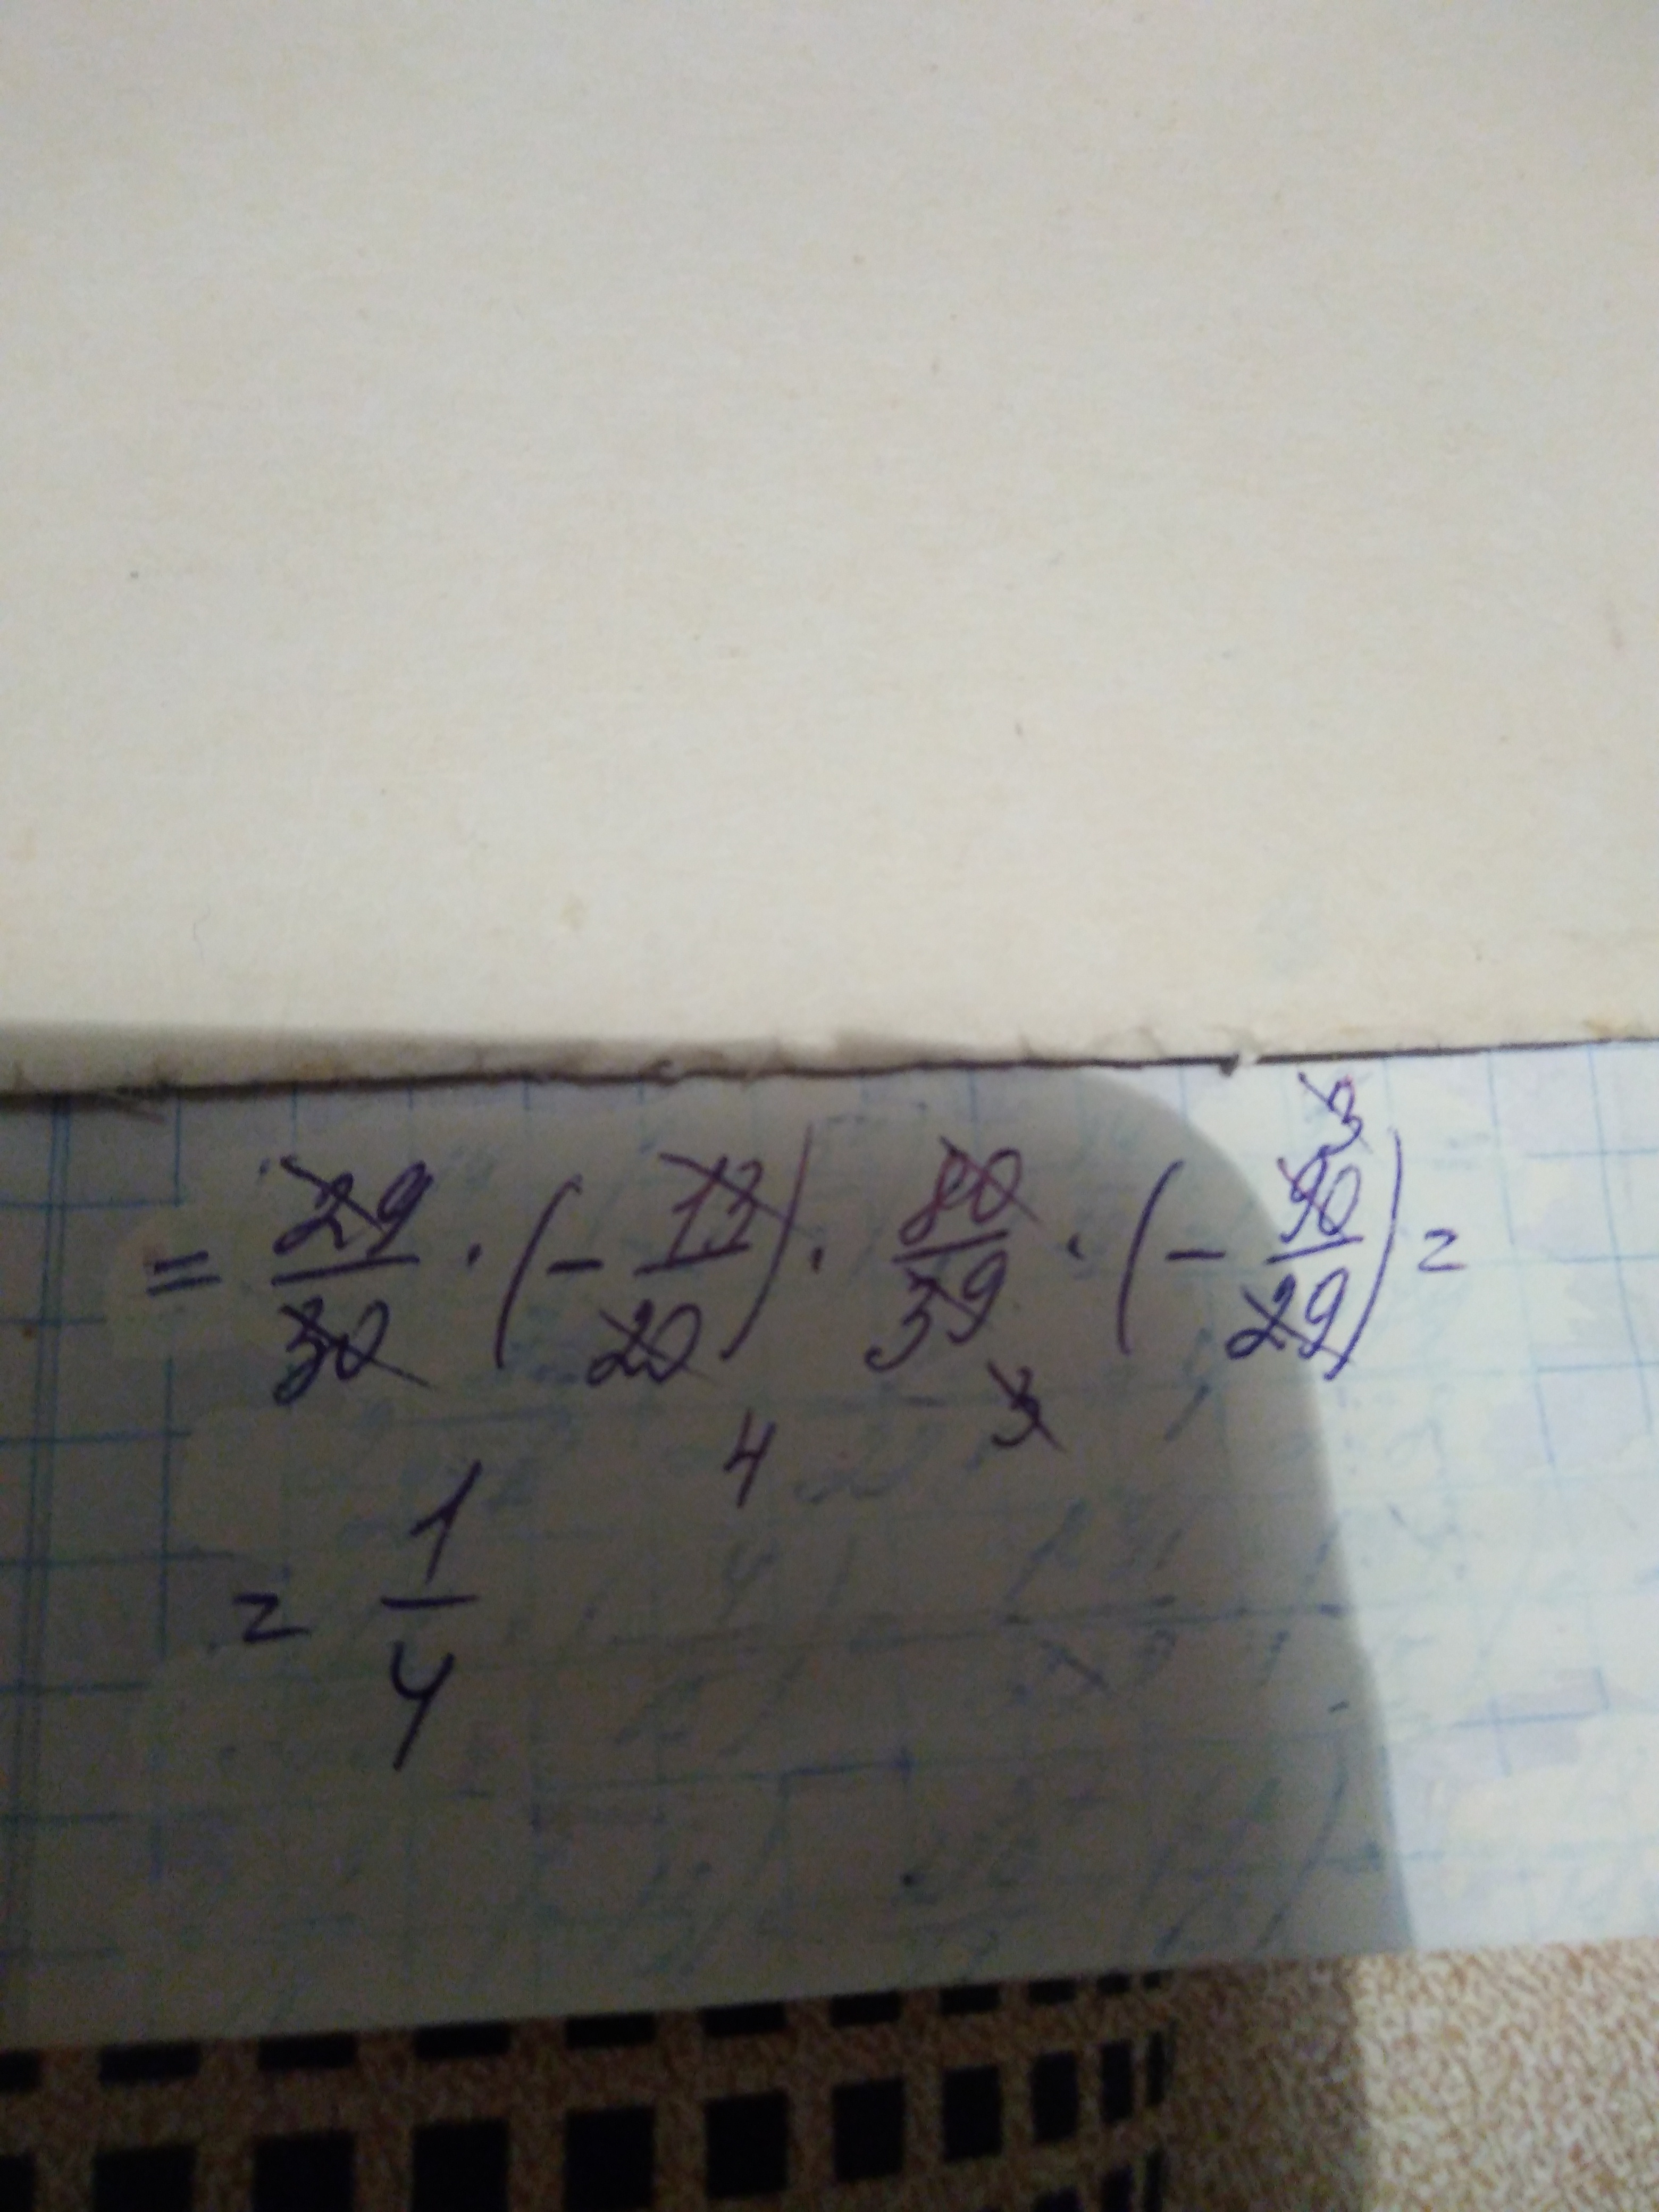 = 29/30 · (- 13/20) · 80/39 · (- 90/29) =
4 3 3
= 1/4